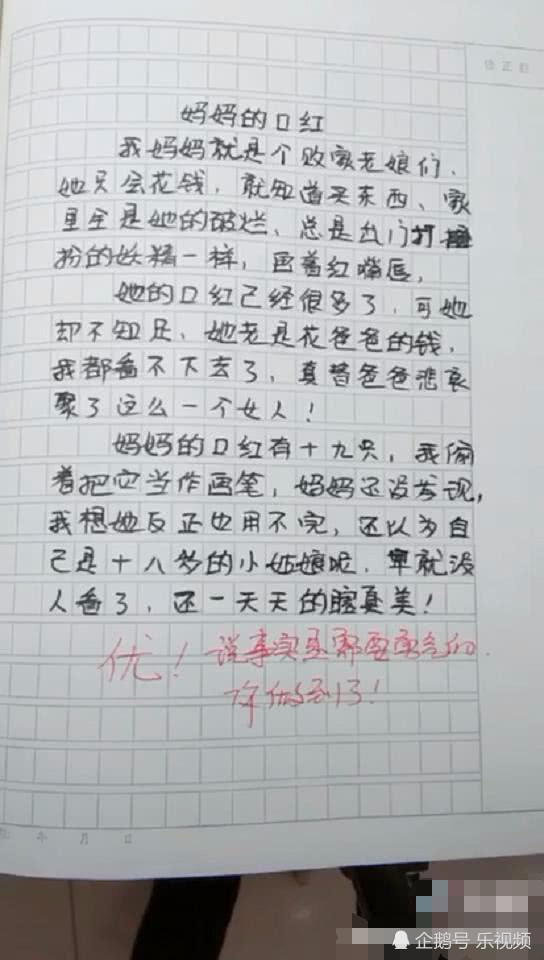 妈妈的口红
我妈妈就是个败家老娘们、
她只会花钱，就知道买东西、家
里全是她的破烂、总是出门打
扮的妖精一样，画着红嘴唇，
她的口红已经很多了，可她
却不知足、她老是花爸爸的钱，
我都看不下去了，真替爸爸悲哀
娶了这么一个女人！
妈妈的口红有十九只，我偷
着把它当作画笔，妈妈还没发现，
我想她反正也用不完，还以为自
己是十八岁的小姑娘呢，早就没
人看了，还一天天的瞎臭美！
优！说事实是需要勇气的．
你做到了！
年 月 日
企鹅号 乐视频